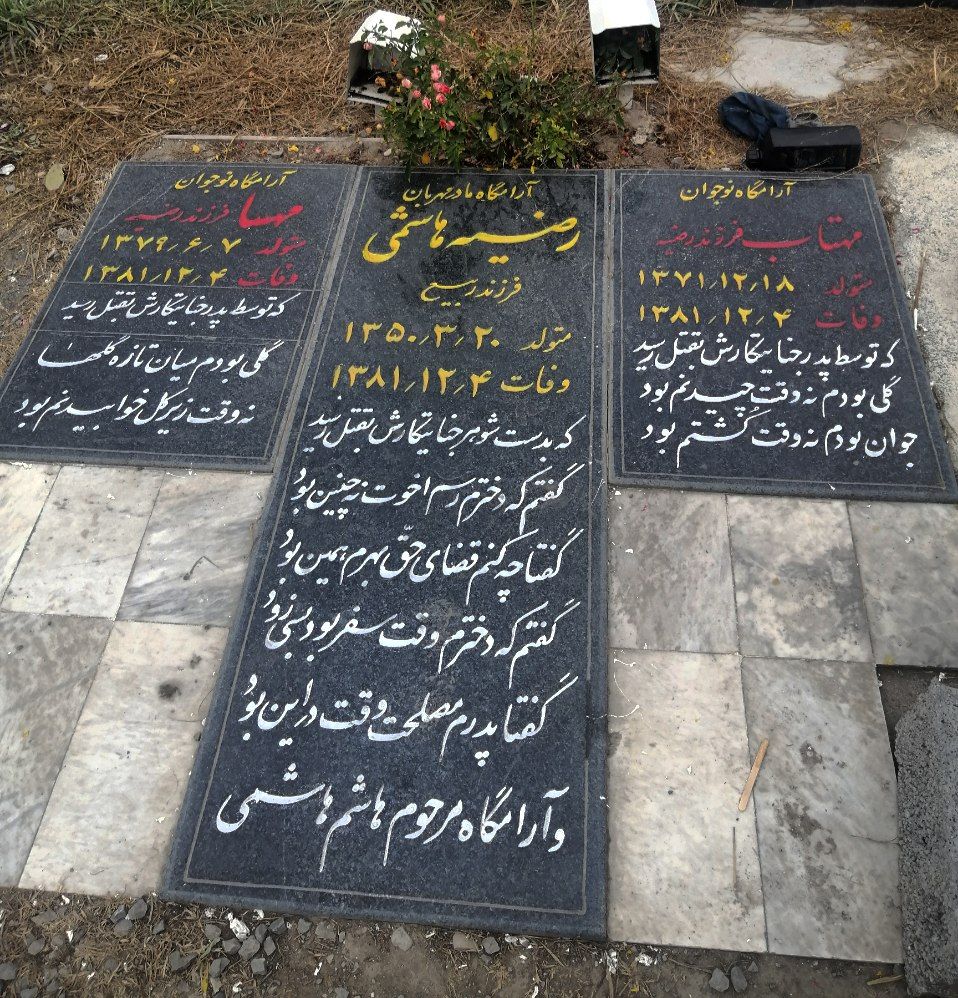 آرامگاه نوجوان
مهتاب فرزند رضیه
متولد ۱۳۷۱٫۱۲٫۱۸
وفات ۱۳۸۱٫۱۲٫۴
که توسط پدر جنایتکارش بقتل رسید
گلی بودم نه وقت چیدنم بود
جوان بودم نه وقت کُشتنم بود
آرامگاه مادر مهربان
رضیه هاشمی
فرزند ربیع
متولد ۱۳۵۰٫۳٫۲۰
وفات ۱۳۸۱٫۱۲٫۴
که بدست شوهر جنایتکارش بقتل رسید
گفتم که دخترم رسم اخوت نه چنین بود
گفتا چه کنم قضای حقّ بهرم همین بود
گفتم که دخترم وقت سفر بود بسی زود
گفتا پدرم مصلحت وقت در این بود
و آرامگاه مرحوم هاشم هاشمی
آرامگاه نوجوان
مهسا فرزند رضیه
متولد ۱۳۷۹٫۶٫۷
وفات ۱۳۸۱٫۱۲٫۴
که توسط پدر جنایتکارش بقتل رسید
گلی بودم میان تازه گلها
نه وقت زیر گل خوابیدنم بود